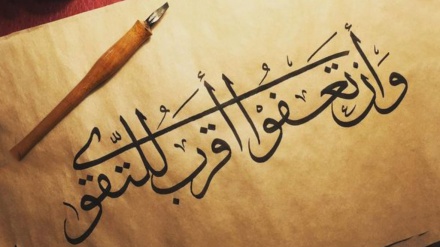 وَأَن تَعْفُوٓا أَقْرَبُ لِلتَّقْوَى